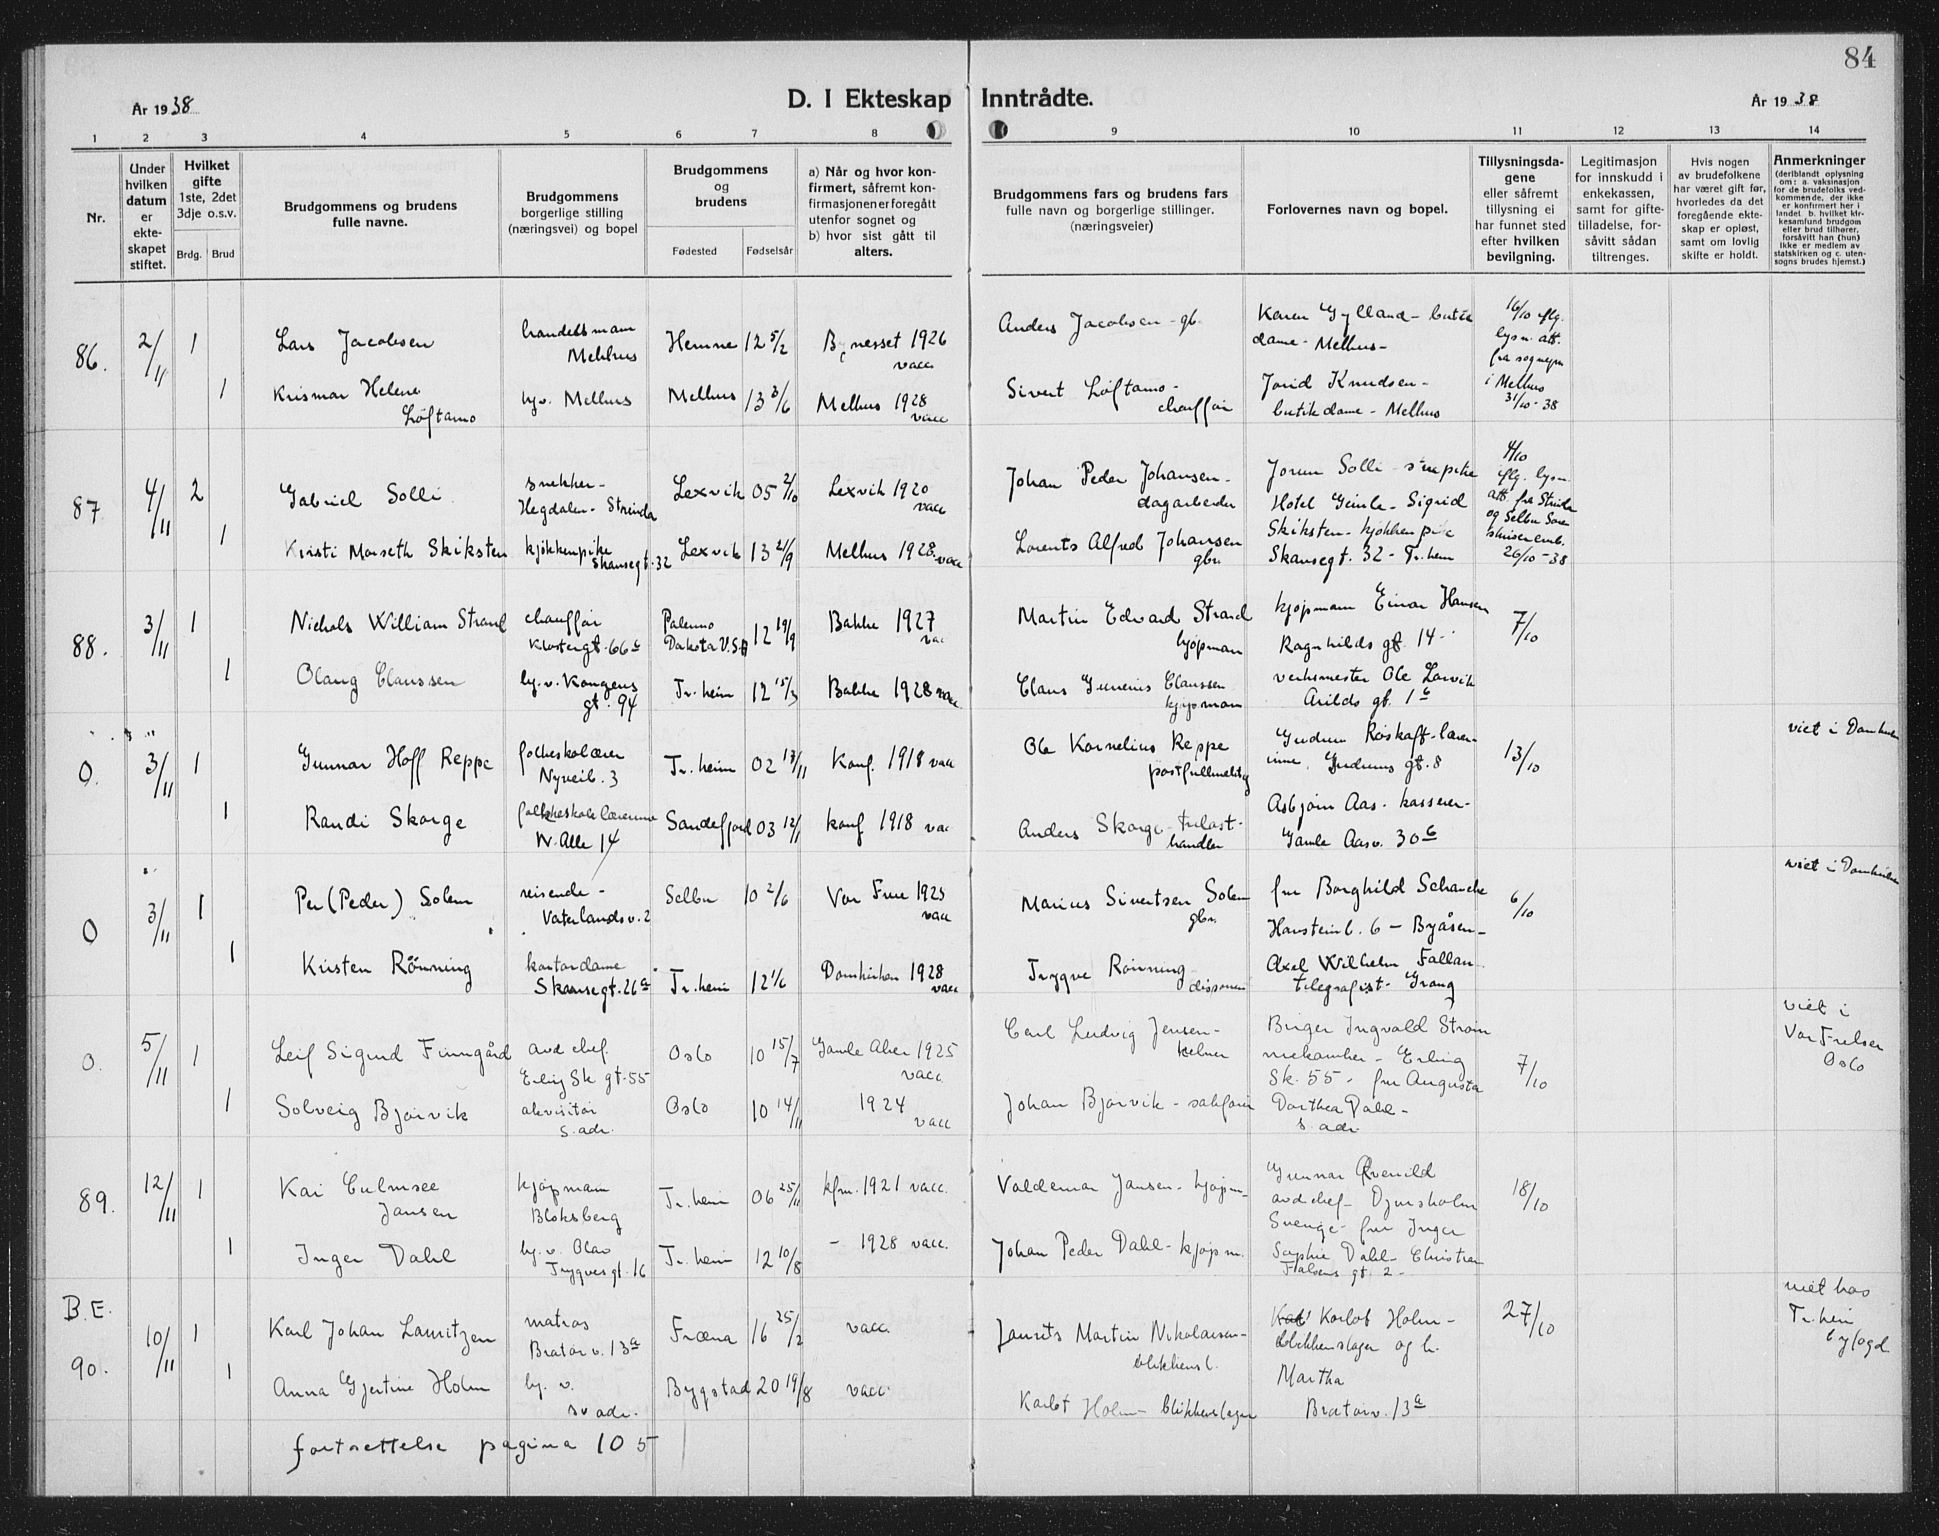 84
År 1938
D. I Ekteskap Inntrådte.
År 1938
1 2 3 4 5 6 7 8 9 10 11 12 13 14
Nr.
Under hvilken datum er ekte-skapet stiftet.
Hvilket gifte 1ste, 2det 3dje o.s.v.
Brdg. Brud
Brudgommens og brudens fulle navne.
Brudgommens borgerlige stilling (næringsvei) og bopel
Brudgommens og brudens
Fødested Fødselsår
a) Når og hvor kon-firmert, såfremt kon-firmasjonen er foregått utenfor sognet og
b) hvor sist gått til alters.
Brudgommens fars og brudens fars fulle navn og borgerlige stillinger. (næringsveier)
Forlovernes navn og bopel.
Tillysningsda-gene eller såfremt tillysning ei har funnet sted efter hvilken bevilgning.
Legitimasjon for innskudd i enkekassen, samt for gifte-tilladelse, for-såvitt sådan tiltrenges.
Hvis nogen av brudefolkene har været gift før, hvorledes da det foregående ekte-skap er opløst, samt om lovlig skifte er holdt.
Anmerkninger (deriblandt oplysning om: a. vaksinasjon for de brudefolks ved-kommende, der ikke er konfirmert her i landet. b. hvilket kir-kesamfund brudgom eller brud tilhører, forsåvitt han (hun) ikke er medlem av statskirken og c. uten-sogns brudes hjemst.)
86. 2/11 1 Lars Jacobsen handelsmann Melhus Hemne 12 5/2 Bynesset 1926 vacc. Anders Jacobsen - gb. Karen Gylland - butik dame - Melhus - 16/10 iflg. lysn. att. fra sognepr. i Melhus 31/10-38
1 Krismar Helene Løftamo hv. Melhus Melhus 13 3/6 Melhus 1928 vacc Sivert Løftamo - chauffør Jorid Knudsen - butikdame - Melhus
87 4/11 2 Gabriel Solli snekker - Hegdalen - Strinda Lexvik 05 2/10 Lexvik 1920 vacc Johan Peder Johansen - dagarbeider Jorun Solli - Hotel Gimle - Sigrid 4/10 iflg. lysn. att. fra Strinda og Selbu 26/10-38
1 Kristi Morseth Skiksten kjøkkenpike Skansegt. 32 Lexvik 13 21/9 Melhus 1928. vacc Lorents Alfred Johansen gbr. Skiksten - kjøkkenpike Skansegt. 32 - Tr.heim
88. 3/11 1 Nichols William Strand chauffør Klostergt. 66a Palermo Dakota U.S.A 12 19/9 Bakke 1927 vac Martin Edvard Strand kjøpman kjøpmann Einar Hansen Ragnhilds gt. 14 - 7/10
1 Olaug Claussen hj. v. Kongens gt. 94 Tr.heim 12 15/3 Bakke 1928 vacc Claus Claussen kjøpmann verksmester Ole Larvik Arilds gt. 1b
O. 3/11 1 Gunnar Hoff Reppe folkeskolærer Nyveib. 3 Tr.heim 02 13/11 Konf. 1918 vacc Ole Kornelius Reppe postfullmektig Gudrun Roskaft - lærer-inne, Gudruns gt. 8 13/10 viet i Domkirken
1 Randi Skorge folkeskolelærerinne N. Alle 14 Sandefjord 03 12/1 konf 1918 vac Anders Skorge - trelast-handler Asbjørn Aas - kasserer - Gamle Aasv. 30b
O 3/11 1 Per (Peder) Solem reisende - Vaterlandsv. 2 Selbu 10 2/6 Vor Frue 1925 vacc Marius Sivertsen Solem gbr. fru Borghild Schanche Hansteinb. 6 - Byåsen - 6/10 viet i Domkirken
1 Kristen Rønning kontordame Skansegt. 26a Tr.heim 12 1/6 Domkirken 1928 vacc Trygve Rønning disponent Axel Wilhelm Fallan telegrafist - Grong
O. 5/11 1 Leif Sigurd Finngård avd chef. Erling Sk gt. 55 Oslo 10 15/7 Gamle Aker 1925 vacc. Carl Ludvig Jensen - kelner Birger Ingvald Strøm - Erling Sk. 55 - fru Augusta 7/10 viet i Vor Frelser Oslo
1 Solveig Bjørvik akvisitør s. adr. Oslo 10 14/11 1924 vacc Johan Bjørvik - sakfører Dorthea Dahl - s. adr
89. 12/11 1 Kai Culmsee Jansen kjøpmann Bloksberg Tr.heim 06 25/11 kfm. 1921 vacc. Valdemar Jansen - kjøpm. Gunnar Qvenild avd chef - Djursholm Sverige - fru Inger 18/10
1 Inger Dahl hj. v. Olav Trygves gt. 16 Tr.heim 12 10/8 - 1928 vacc. Johan Peder Dahl - kjøpm. Sophie Dahl - Christian Falsens gt. 2 -
B.E. 90. 10/11 1 Karl Johan Lauritzen matros Bratørv. 13a Fræna 16 25/2 vacc. Laurits Martin Nikolaisen - blikkensl. Karlot Holm - blikkenslager og h. Martha Bratørv. 13a 27/10 viet hos Tr.heim byfogd
1 Anna Gjertine Holm hj. v. s. adr. Bygstad 20 19/8 vacc. Karlot Holm - blikkenslager
fortsettelse pagina 105